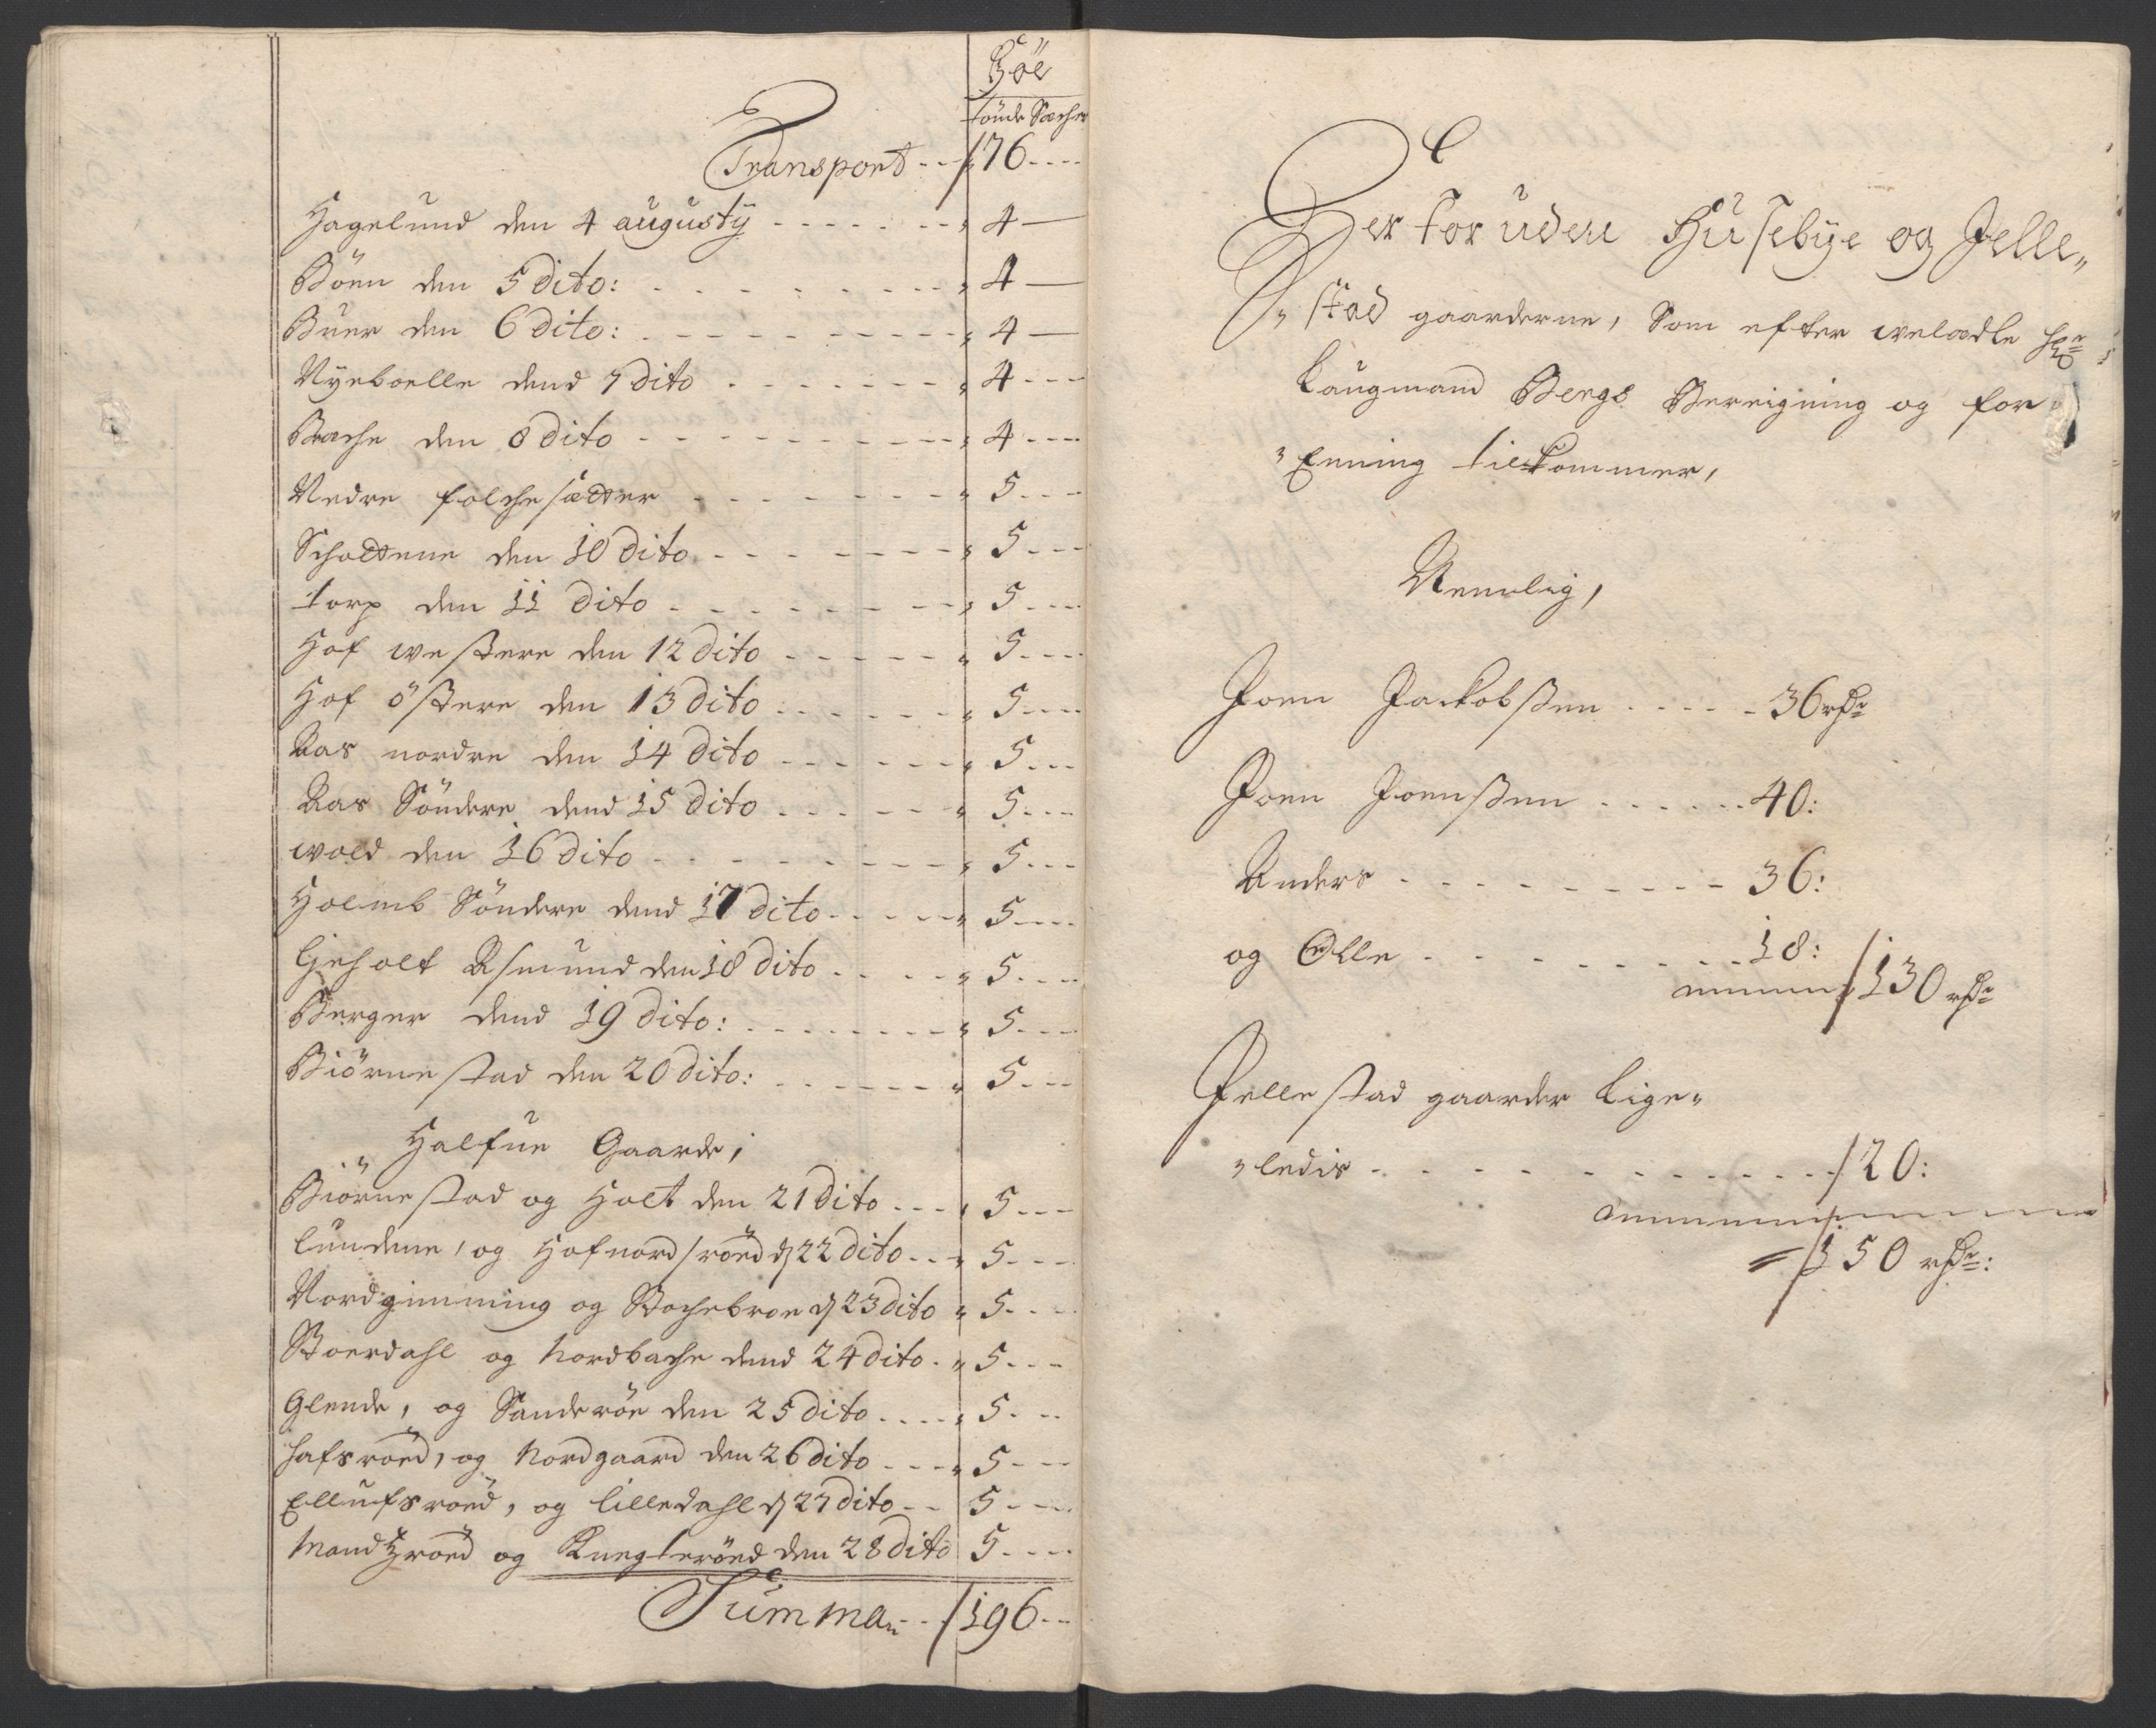 Höe
tönde Sæcher
Transport - - 76 - - - -
Hagelund den 4 augustij - - - - - - - 4 —
Böen den 5 dito: - - - - - - - - 4 —
Buer den 6 dito: - - - - - - - - 4 —
Nyeboelle dend 7 dito - - - - - - - 4 - - -
Bache den 8 dito - - - - - - - - 4 - - -
Nedre folchesætter - - - - - - - 5 - - -
Scholtene den 10 dito - - - - - - - 5 - - -
torp den 11 dito - - - - - - - 5 - - -
Hof westere den 12 dito - - - - - 5 - - -
Hof östere den 13 dito - - - - - - 5 - - -
Aas nordre den 14 dito - - - - - - 5 - - -
Aas Söndere dend 15 dito - - - - - 5 - - -
wold den 16 dito - - - - - - - - 5 - - -
Holmb Söndere dend 17 dito - - - - - 5 - - -
Asmund den 18 dito - - - - 5 - - -
Berger dend 19 dito: - - - - - - - 5 - - -
Biörnestad den 20 dito: - - - - - - 5 - - -
Halfue Gaarde,
Biörnestad og Holt den 21 dito - - - 5 - - -
lundene, og Hofnordsröed d 22 dito - - 5 - - -
Nordginning og Stochebroe d 23 dito 5 - - -
Stoerdahl og Nordbache dend 24 dito - 5 - - -
Glende, og Sanderöe den 25 dito - - - - 5 - - -
hafsroed, og Nordgaard den 26 dito - - - 5 - - -
Ellufsroed, og lilledahl d 27 dito - - 5 - - -
Mandtzroed og den 28 dito 5 - - - -
Summa - - 196 - -
Der foruden Husebye og Jelle„
„stad gaarderne, Som efter welædle Hr
Laugmand Bergs Bereigning og for
„Eening tilkommer,
Nemlig,
Joen Jackobssen - - - - - 36 rdr
Joen Joenssen - - - - - - 40:
Anders - - - - - - - - - 36:
og Olle - - - - - - - - - 18:
130 rdr
Jellestad gaarder lige„
„ledis - - - - - - - - - - - - 20:
= 150 rdr: